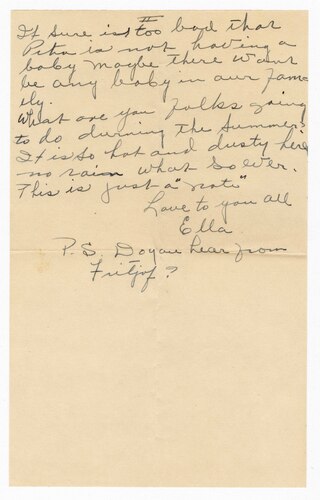 II
It sure is too bad that
Pita is not having a
baby maybe there wont
be any baby in our fam-
ily.
What are you folks going
to do durning the summer?
It is so hot and dusty here
no rain what so ever.
This is just a "note"
Love to you all
Ella
P.S. Do you hear from
Fritjof?